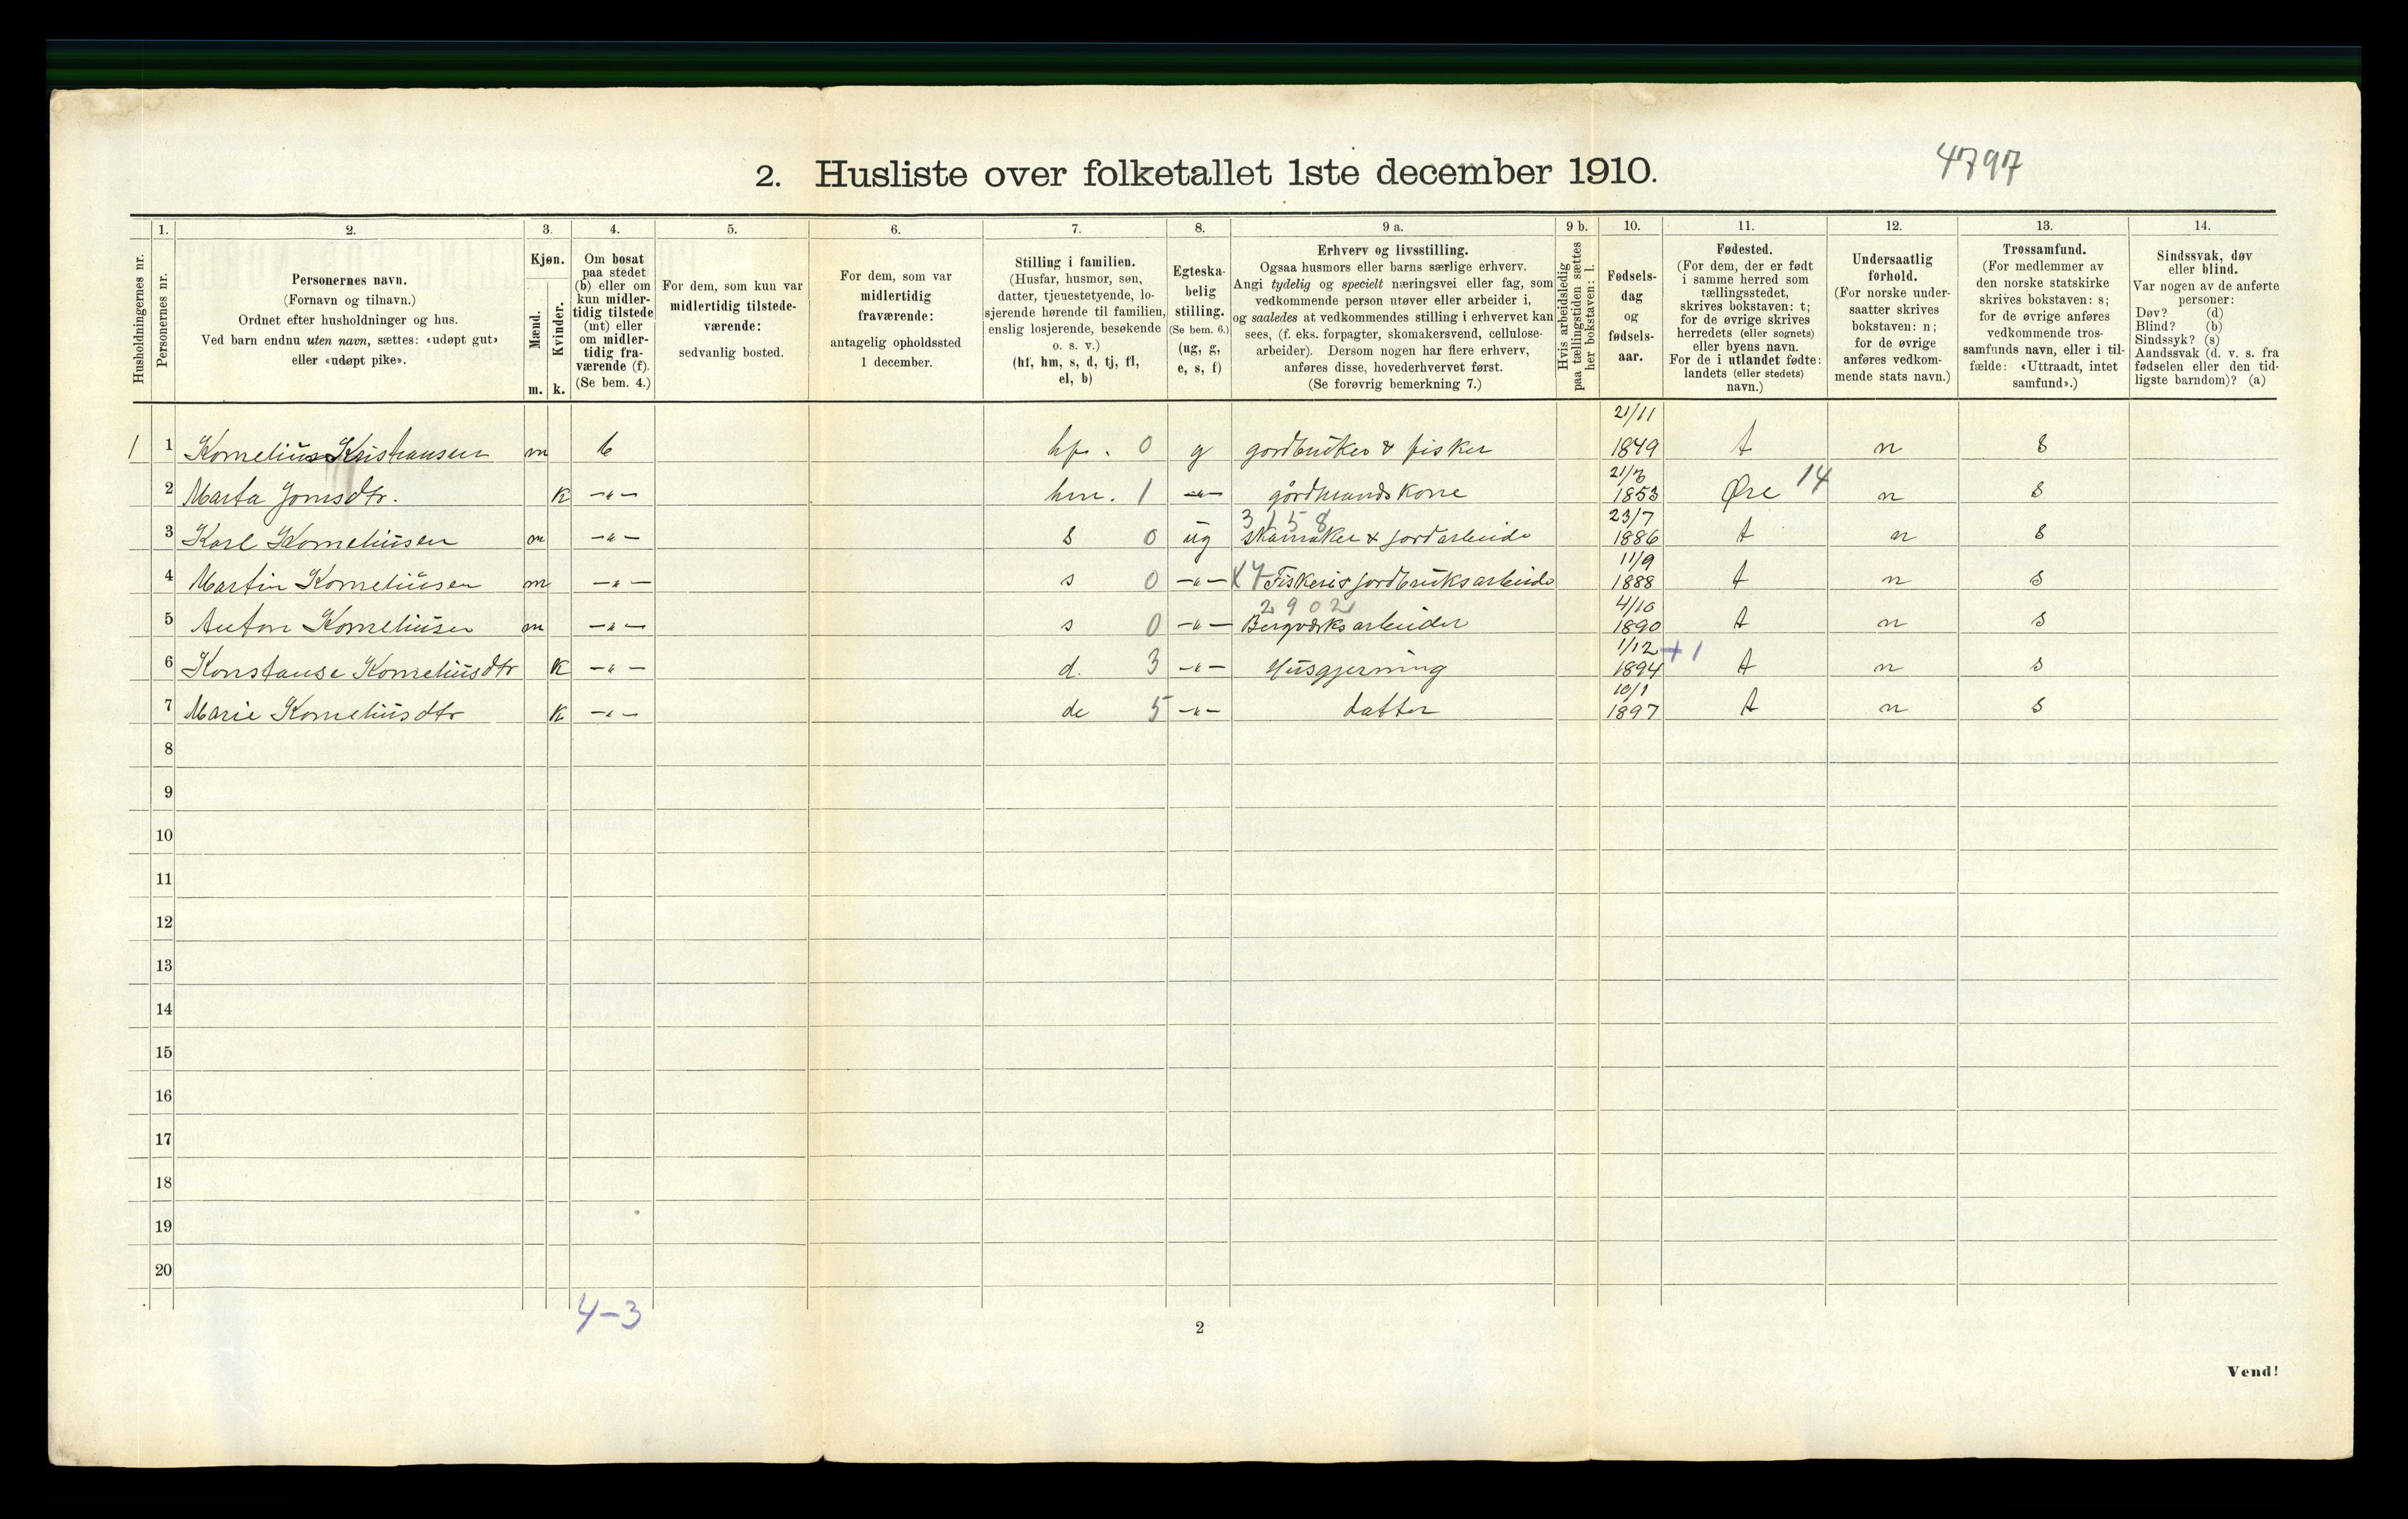 4797
2. Husliste over folketallet 1ste december 1910.
Husholdningernes nr.
1.
Personernes nr.
2.
Personernes navn.
(Fornavn og tilnavn.)
Ordnet efter husholdninger og hus.
Ved barn endnu uten navn, sættes: «udøpt gut»
eller «udøpt pike».
3.
Kjøn.
Mænd.
Kvinder.
m. k.
4.
Om bosat
paa stedet
(b) eller om
kun midler-
tidig tilstede
(mt) eller
om midler-
tidig fra-
værende (f).
(Se bem. 4.)
5.
For dem, som kun var
midlertidig tilstede-
værende:
sedvanlig bosted.
6.
For dem, som var
midlertidig
fraværende:
antagelig opholdssted
1 december.
7.
Stilling i familien.
(Husfar, husmor, søn,
datter, tjenestetyende, lo-
sjerende hørende til familien,
enslig losjerende, besøkende
o. s. v.)
(hf, hm, s, d, tj, fl,
el, b)
8.
Egteska-
belig
stilling.
(Se bem. 6.)
(ug, g,
e, s, f)
9 a.
Erhverv og livsstilling.
Ogsaa husmors eller barns særlige erhverv.
Angi tydelig og specielt næringsvei eller fag, som
vedkommende person utøver eller arbeider i,
og saaledes at vedkommendes stilling i erhvervet kan
sees, (f. eks. forpagter, skomakersvend, cellulose-
arbeider). Dersom nogen har flere erhverv,
anføres disse, hovederhvervet først.
(Se forøvrig bemerkning 7.)
9 b.
Hvis arbeidsledig
paa tællingstiden sættes
her bokstaven: l.
10.
Fødsels-
dag
og
fødsels-
aar.
11.
Fødested.
(For dem, der er født
i samme herred som
tællingsstedet,
skrives bokstaven: t;
for de øvrige skrives
herredets (eller sognets)
eller byens navn.
For de i utlandet fødte:
landets (eller stedets)
navn.)
12.
Undersaatlig
forhold.
(For norske under-
saatter skrives
bokstaven: n;
for de øvrige
anføres vedkom-
mende stats navn.)
13.
Trossamfund.
(For medlemmer av
den norske statskirke
skrives bokstaven: s;
for de øvrige anføres
vedkommende tros-
samfunds navn, eller i til-
fælde: «Uttraadt, intet
samfund».)
14.
Sindssvak, døv
eller blind.
Var nogen av de anførte
personer:
Døv? (d)
Blind? (b)
Sindssyk? (s)
Aandssvak (d. v. s. fra
fødselen eller den tid-
ligste barndom)? (a)
21/11
1 1 Kornelius Kristiansen m b hf. 0 g gordbruker & fisker 1849 t n s
2 Marta Jonsdtr. k -"- hm. 1 -"- gårdmandskone 1853 Øre 14 n s
3 1 5 8 23/7
3 Karl Korneliusen m -"- s 0 ug skomaker & jordarbeide 1886 t n s
11/9
4 Martin Korneliusen m -"- s 0 -"- X 7 Fiskeri & jordbruksarbeide 1888 t n s
2 9 0 2 4/10
5 Anton Korneliusen m -"- s 0 -"- Bergverksarbeider 1890 t n s
1/12 +1
6 Konstanse Korneliusdtr k -"- d. 3 -"- Husgjerning 1894 t n s
10/1
7 Marie Korneliusdtr k -"- de 5 -"- datter 1897 t n s
8
9
10
11
12
13
14
15
16
17
18
19
20
4-3
2
Vend!